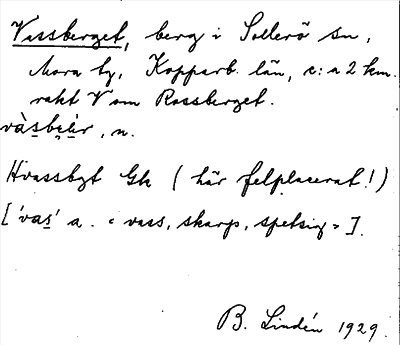 Vassberget, berg i Sollerö sn,
Mora tg, Kopparb. län, c:a 2 km.
rakt V om Rossberget.
vàsbɛ̀r, n.
Hvassbgt Gk (här felplacerat!)
['vas' a. « vass, skarp, spetsig »].
B. Lindén 1929.